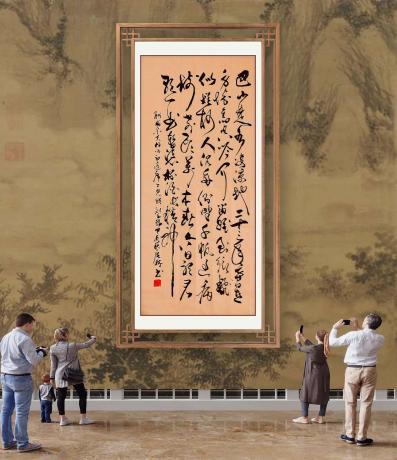 巴山楚水凄凉地二十三年弃置
身怀旧空吟闻笛赋到乡翻
似烂柯人沉舟侧畔千帆过病
树前头万木春今日听君
歌一曲暂凭杯酒长精神